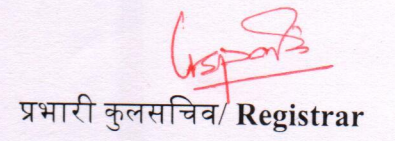 प्रभारी कुलसचिव/ Registrar